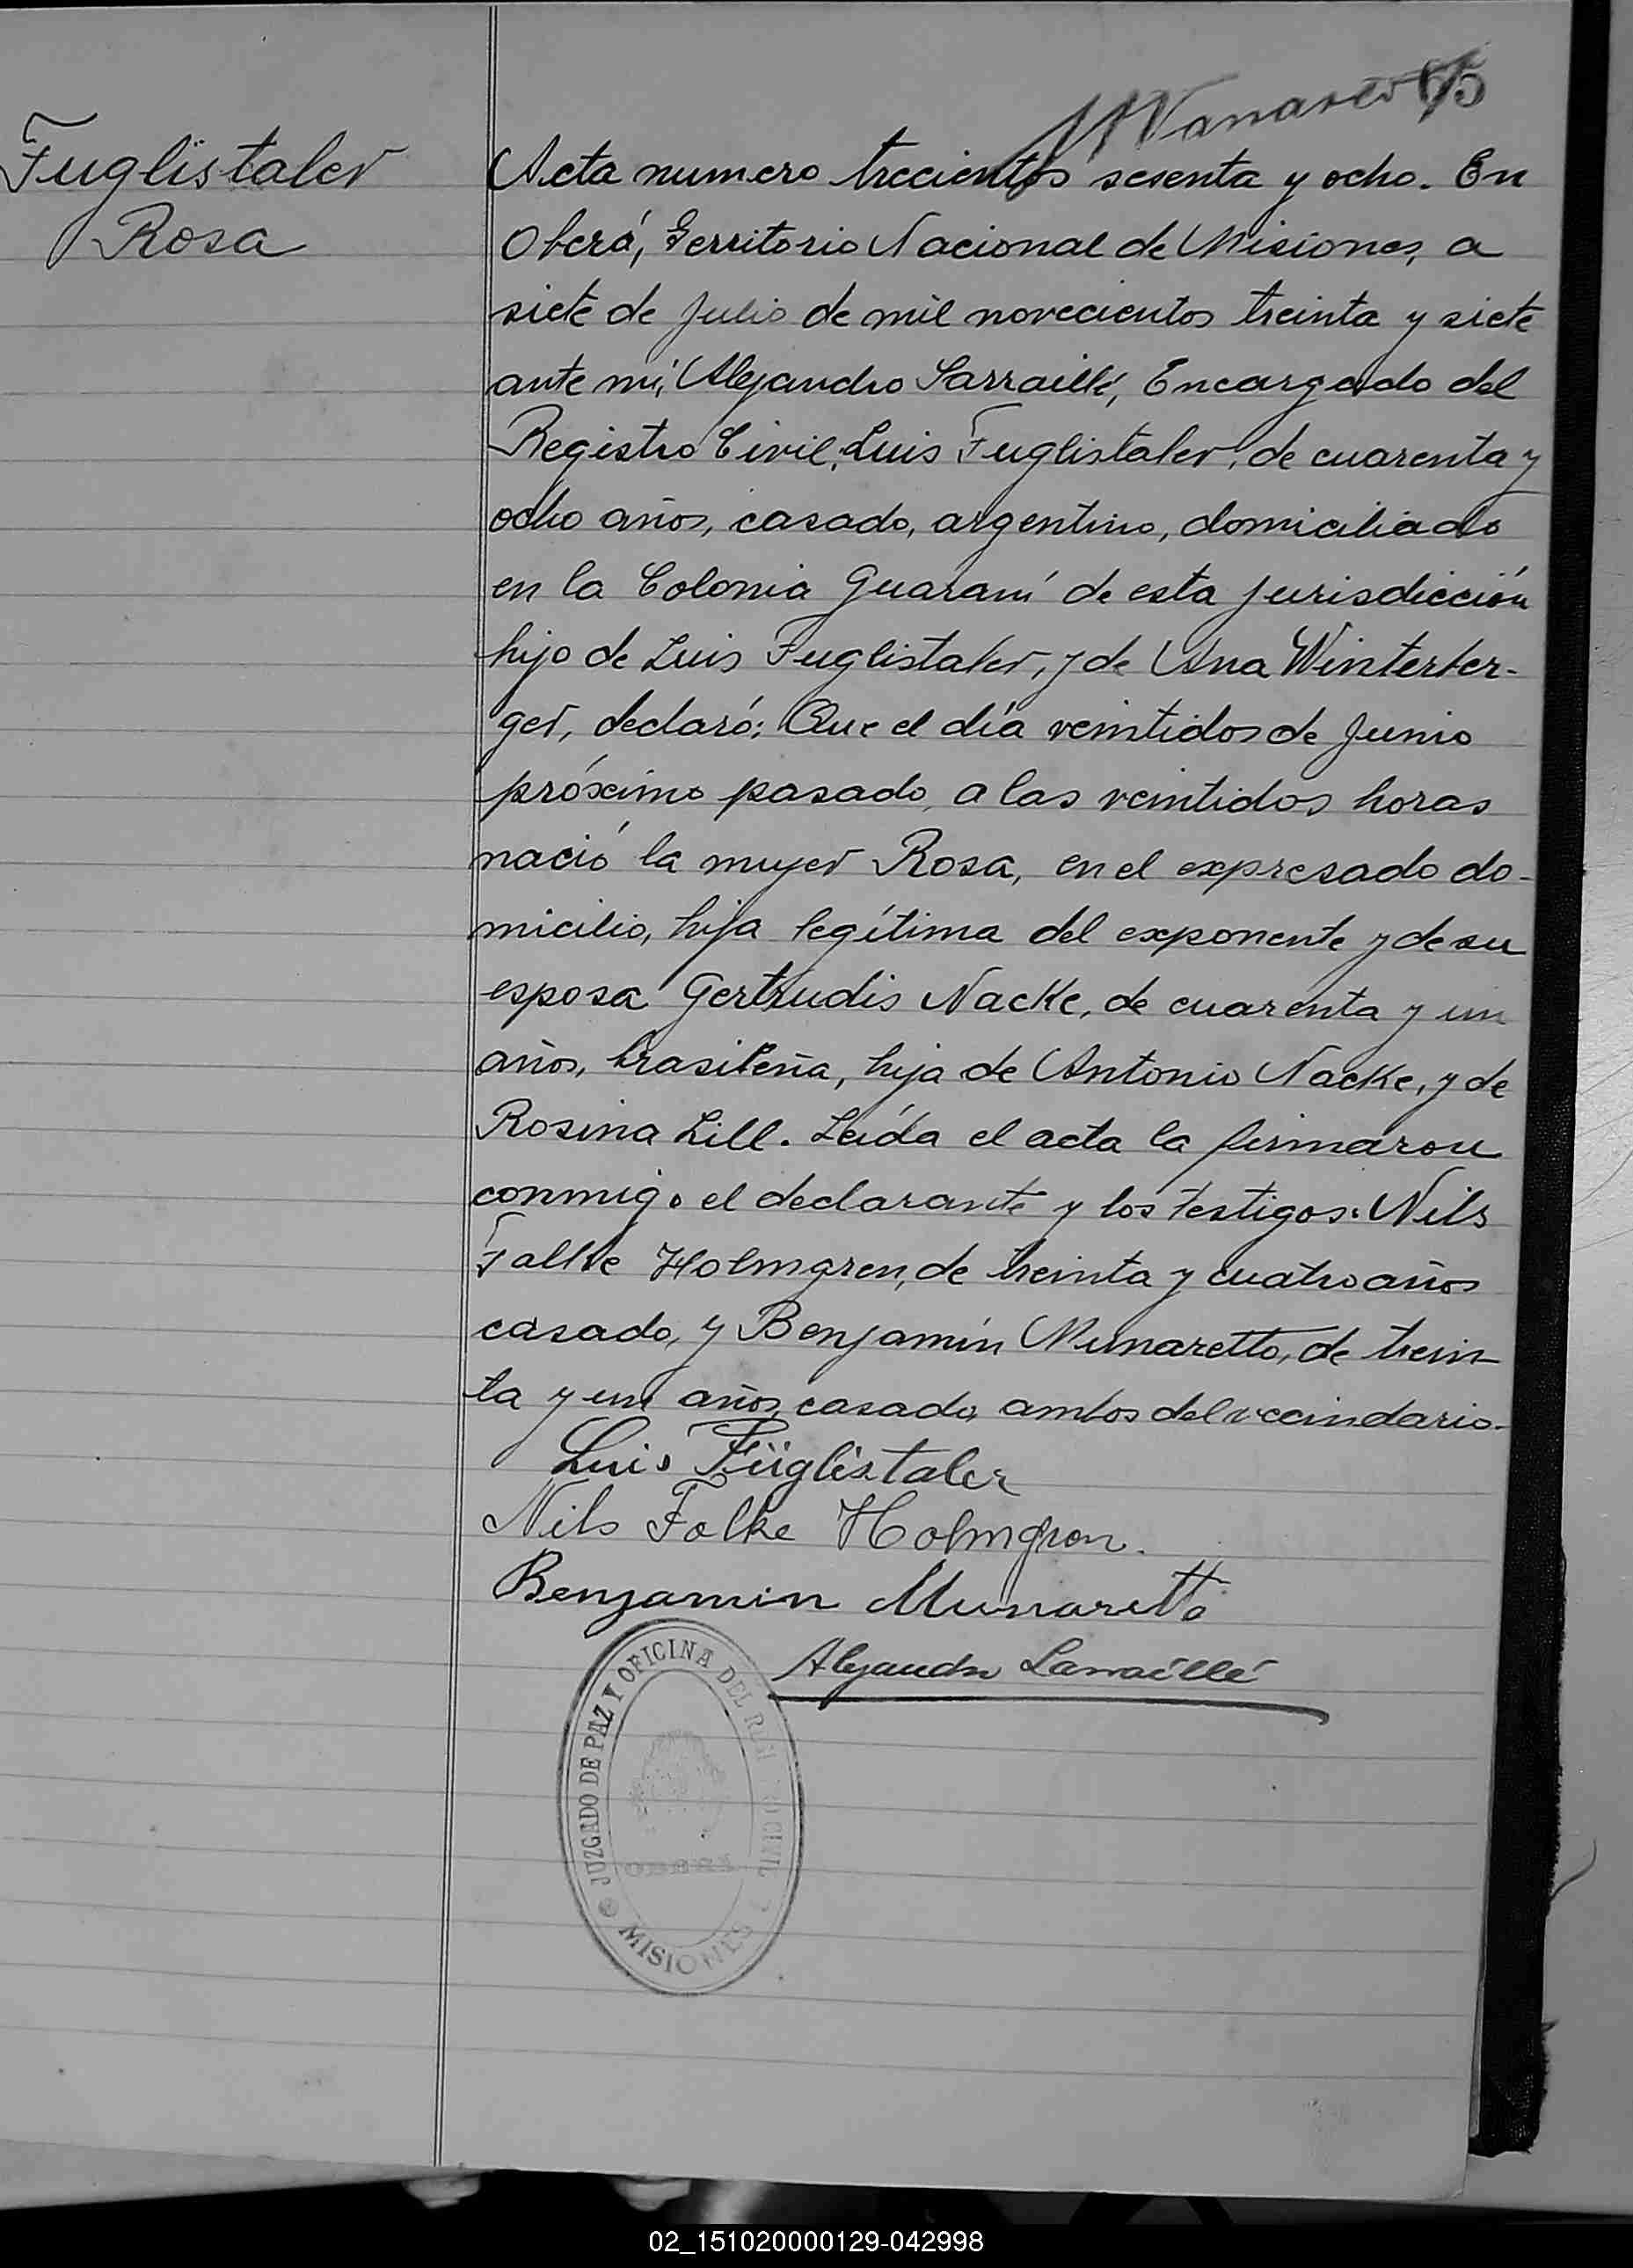 65
Fuglistaler
Rosa
Acta numero trecientos sesenta y ocho. En
Oberá, Territorio Nacional de Misiones, a
siete de Julio de mil novecientos treinta y siete
ante mi, Alejandro Larraillé, Encargado del
Registro Civil, Luis Fuglistaler, de cuarenta y
ocho años, casado, argentino, domiciliado
en la Colonia Guaraní de esta jurisdicción
hijo de Luis Fuglistaler, y de Ana Winterber-
ger, declaró: Que el día veintidos de Junio
próximo pasado, a las veintidos horas
nació la mujer Rosa, en el expresado do-
micilio, hija legítima del exponente y de su
esposa Gertrudis Nacke, de cuarenta y un
años, brasileña, hija de Antonio Nacke, y de
Rosina Lill. Leída el acta la firmaron
conmigo el declarante y los testigos: Nils
Falke Holmgren, de treinta y cuatro años
casado, y Benjamín Munaretto, de trein-
ta y un años, casado, ambos del vecindario.
Luis Füglistaler
Nils Folke Holmgren.
Benjamin Munaretto
Alejandro Larraillé
JUZGADO DE PAZ Y OFICINA DEL REGISTRO CIVIL
OBERÁ
MISIONES
02_151020000129-042998